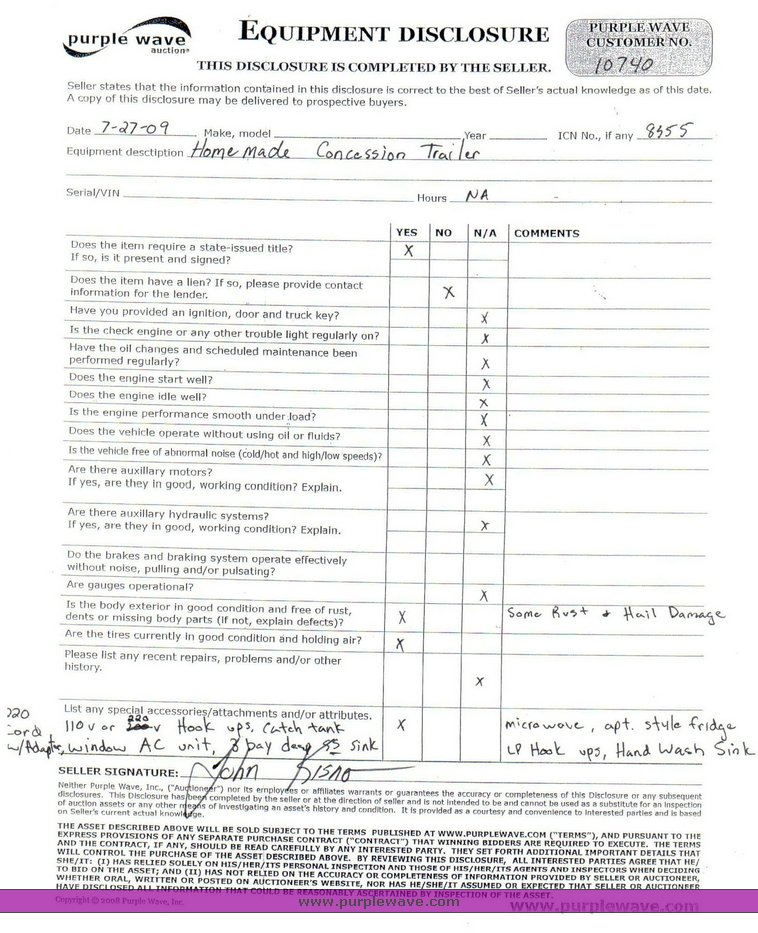 purple wave
auction®
EQUIPMENT DISCLOSURE
PURPLE WAVE
CUSTOMER NO.
10740
THIS DISCLOSURE IS COMPLETED BY THE SELLER.
Seller states that the information contained in this disclosure is correct to the best of Seller's actual knowledge as of this date.
A copy of this disclosure may be delivered to prospective buyers.
Date 7-27-09 Make, model Year ICN No., if any 8355
Equipment desctiption Home made Concession Trailer
Serial/VIN Hours NA
YES NO N/A COMMENTS
Does the item require a state-issued title? X
If so, is it present and signed?
Does the item have a lien? If so, please provide contact
information for the lender. X
Have you provided an ignition, door and truck key? X
Is the check engine or any other trouble light regularly on? X
Have the oil changes and scheduled maintenance been
performed regularly? X
Does the engine start well? X
Does the engine idle well? X
Is the engine performance smooth under load? X
Does the vehicle operate without using oil or fluids? X
Is the vehicle free of abnormal noise (cold/hot and high/low speeds)? X
Are there auxillary motors? X
If yes, are they in good, working condition? Explain.
Are there auxillary hydraulic systems?
If yes, are they in good, working condition? Explain. X
Do the brakes and braking system operate effectively
without noise, pulling and/or pulsating?
Are gauges operational? X
Is the body exterior in good condition and free of rust,
dents or missing body parts (if not, explain defects)? X Some Rust & Hail Damage
Are the tires currently in good condition and holding air? X
Please list any recent repairs, problems and/or other
history. X
List any special accessories/attachments and/or attributes.
220 110 v or 220 v Hook ups, Catch tank X microwave, apt. style fridge
Cord w/Adapter, window AC unit, 3 bay deep SS sink LP Hook ups, Hand Wash Sink
SELLER SIGNATURE: John
Neither Purple Wave, Inc., ("Auctioneer") nor its employees or affiliates warrants or guarantees the accuracy or completeness of this Disclosure or any subsequent
disclosures. This Disclosure has been completed by the seller or at the direction of seller and is not intended to be and cannot be used as a substitute for an inspection
of auction assets or any other means of investigating an asset's history and condition. It is provided as a courtesy and convenience to interested parties and is based
on Seller's current actual knowledge.
THE ASSET DESCRIBED ABOVE WILL BE SOLD SUBJECT TO THE TERMS PUBLISHED AT WWW.PURPLEWAVE.COM ("TERMS"), AND PURSUANT TO THE
EXPRESS PROVISIONS OF ANY SEPARATE PURCHASE CONTRACT ("CONTRACT") THAT WINNING BIDDERS ARE REQUIRED TO EXECUTE. THE TERMS
AND THE CONTRACT, IF ANY, SHOULD BE READ CAREFULLY BY ANY INTERESTED PARTY. THEY SET FORTH ADDITIONAL IMPORTANT DETAILS THAT
WILL CONTROL THE PURCHASE OF THE ASSET DESCRIBED ABOVE. BY REVIEWING THIS DISCLOSURE, ALL INTERESTED PARTIES AGREE THAT HE/
SHE/IT: (I) HAS RELIED SOLELY ON HIS/HER/ITS PERSONAL INSPECTION AND THOSE OF HIS/HER/ITS AGENTS AND INSPECTORS WHEN DECIDING
TO BID ON THE ASSET; AND (II) HAS NOT RELIED ON THE ACCURACY OR COMPLETENESS OF INFORMATION PROVIDED BY SELLER OR AUCTIONEER,
WHETHER ORAL, WRITTEN OR POSTED ON AUCTIONEER'S WEBSITE, NOR HAS HE/SHE/IT ASSUMED OR EXPECTED THAT SELLER OR AUCTIONEER
HAVE DISCLOSED ALL INFORMATION THAT COULD BE REASONABLY ASCERTAINED BY INSPECTION OF THE ASSET.
Copyright © 2008 Purple Wave, Inc. www.purplewave.com www.purplewave.com